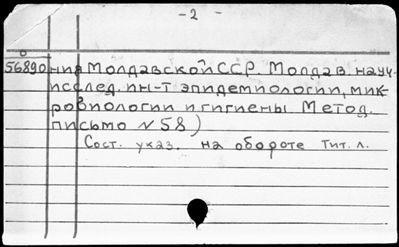 - 2 -
56890 ния Молдавской ССР Молдав. науч.-
исслед. ин-т эпидемиологии, мик-
робиологии и гигиены Метод.
письмо N 58)
Сост. указ. на обороте тит. л.